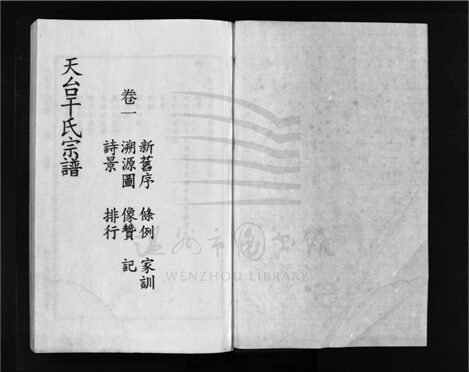 卷一
新舊序　條例　家訓
溯源圖　像贊　記
詩景　排行
天台干氏宗譜
温州市图书馆
WENZHOU LIBRARY